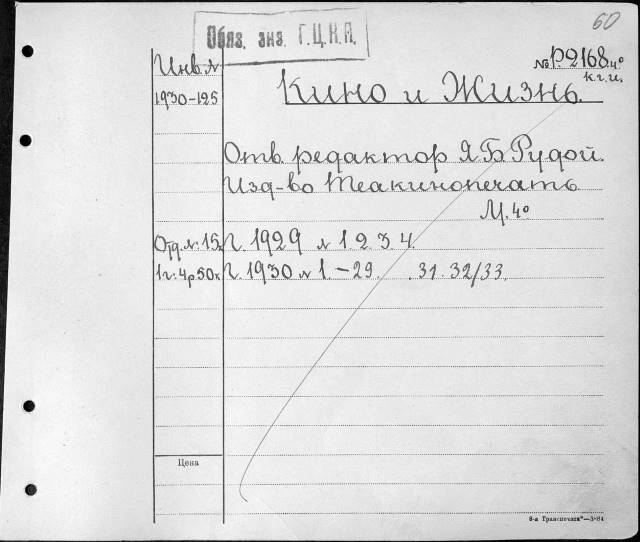 60
Обяз. экз. Г.Ц.К.П.
Инв. №
№ Р.2168 4º
к.г.и.
1930-125
Кино и Жизнь.
Отв. редактор Я.Б.Рудой.
Изд-во Теакинопечать
М. 4º
Отд. №: 15к
Г. 1929 № 1. 2. 3 4.
1г: 4р50к
Г. 1930 № 1. - 29. . 31. 32/33.
Цена
8-я Транспечать"—3-84